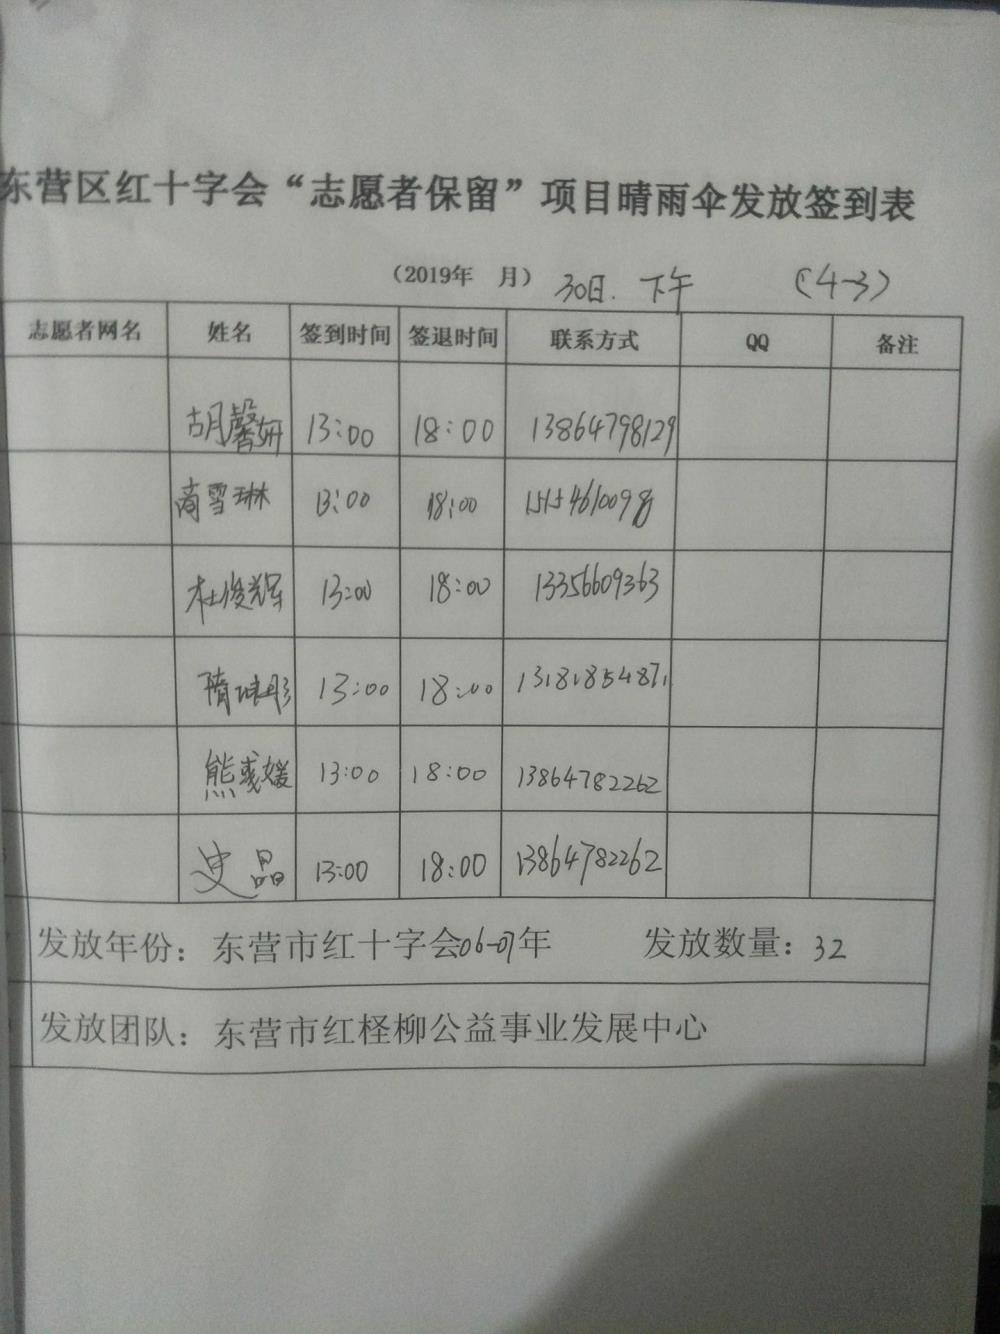 东营区红十字会“志愿者保留”项目晴雨伞发放签到表
（2019年 月）30日.下午 （4-3）
志愿者网名 姓名 签到时间 签退时间 联系方式 QQ 备注
胡馨妍 13:00 18:00 13864798129
商雪琳 13:00 18:00
杜俊辉 13:00 18:00 13356609363
隋 彤 13:00 18:00 13181854871
熊 媛 13:00 18:00 13864782262
史晶 13:00 18:00 13864782262
发放年份：东营市红十字会06-07年 发放数量：32
发放团队：东营市红柽柳公益事业发展中心